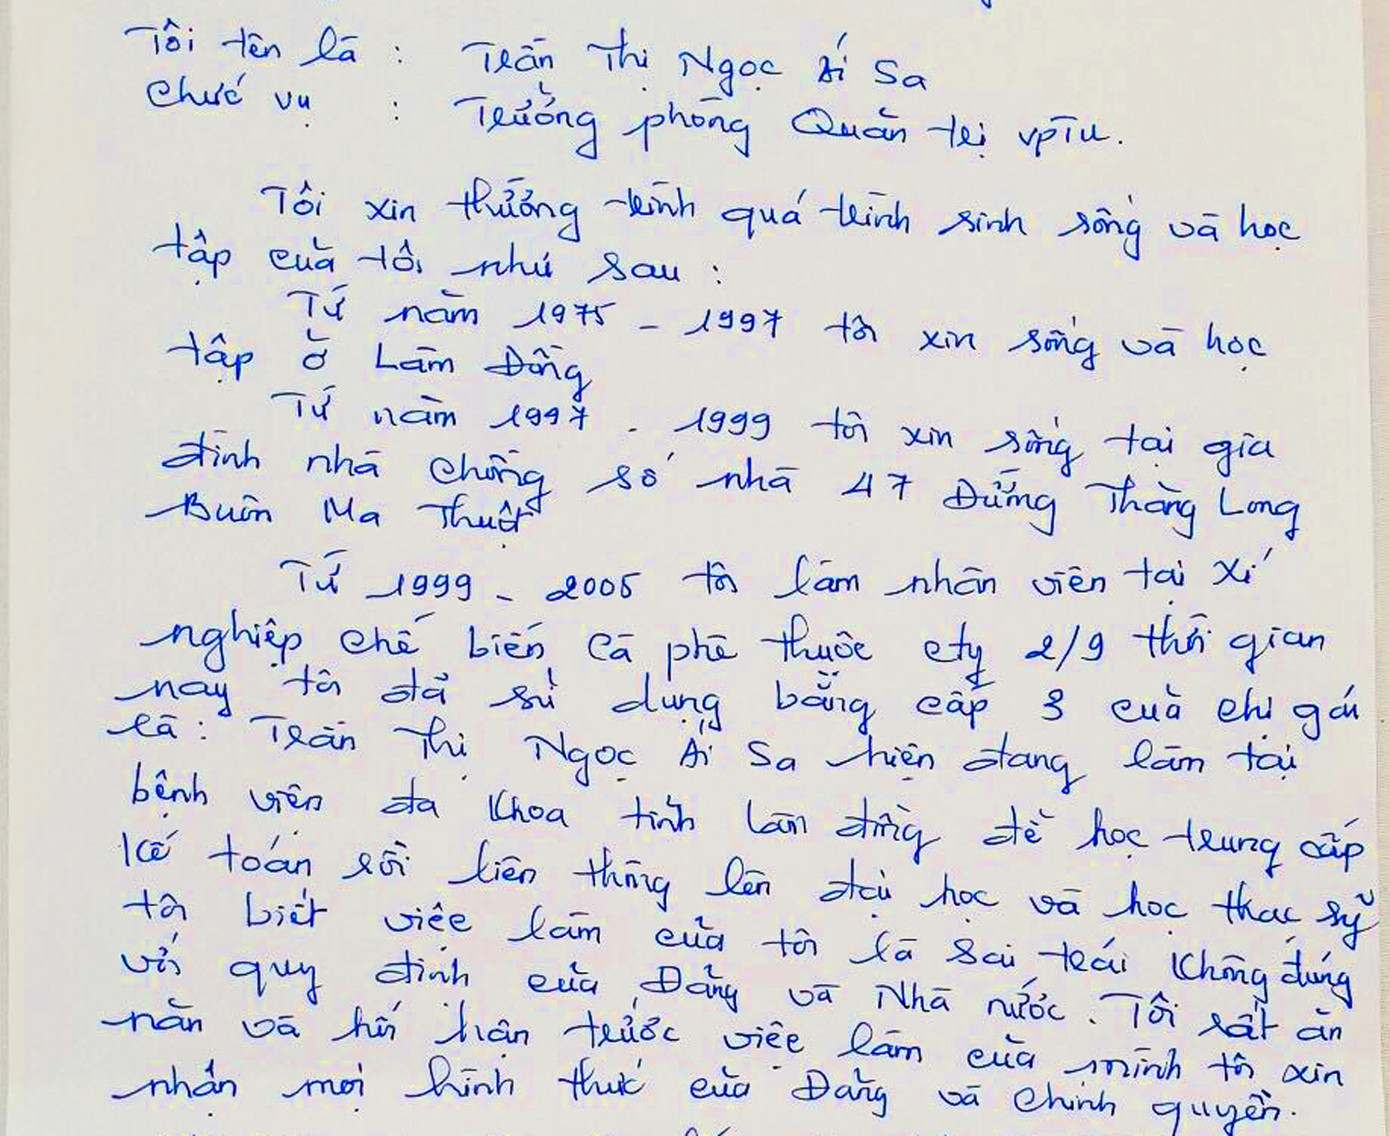 Tôi tên là : Trần Thị Ngọc Ái Sa
Chức vụ : Trưởng phòng Quản trị VPTU.
Tôi xin tường trình quá trình sinh sống và học
tập của tôi như sau :
Từ năm 1975 - 1997 tôi xin sống và học
tập ở Lâm Đồng
Từ năm 1997 - 1999 tôi xin sống tại gia
đình nhà chồng số nhà 47 Đường Thăng Long
Buôn Ma Thuột
Từ 1999 - 2005 tôi làm nhân viên tại Xí
nghiệp chế biến cà phê thuộc cty 2/9 thời gian
này tôi đã sử dụng bằng cấp 3 của chị gái
là : Trần Thị Ngọc Ái Sa hiện đang làm tại
bệnh viện đa khoa tỉnh Lâm đồng để học trung cấp
kế toán rồi liên thông lên đại học và học thạc sỹ
tôi biết việc làm của tôi là sai trái không đúng
với quy định của Đảng và Nhà nước. Tôi rất ăn
năn và hối hận trước việc làm của mình tôi xin
nhận mọi hình thức của Đảng và chính quyền.